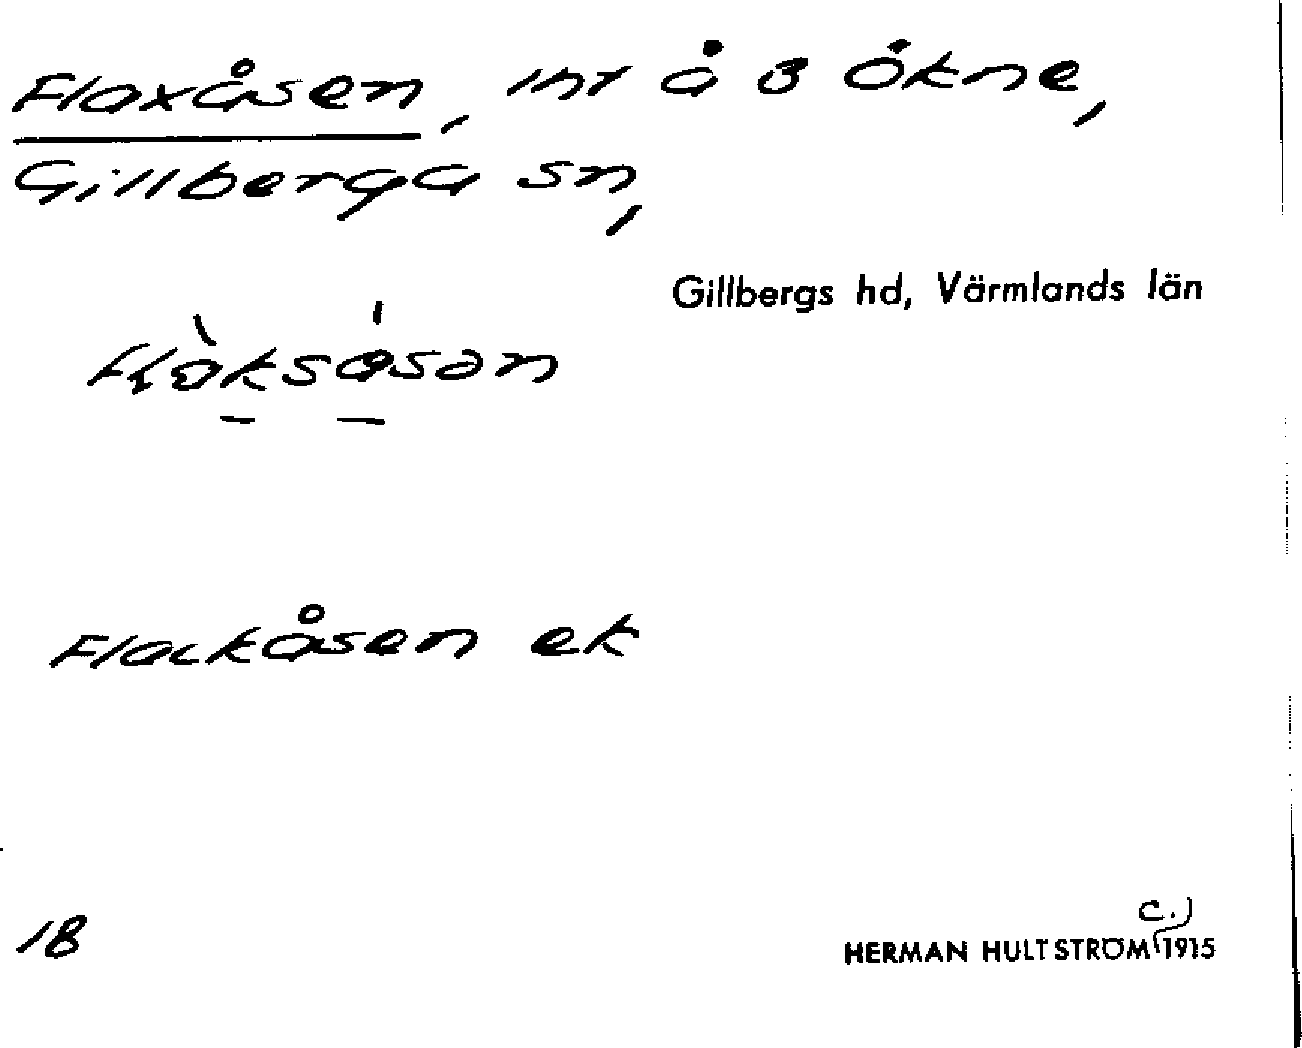 Flaxåsen, int å 3 Ökne,
Gillberga sn,
Gillbergs hd, Värmlands län
Flackåsen ek
18
c.)
HERMAN HULTSTRÖM 1915